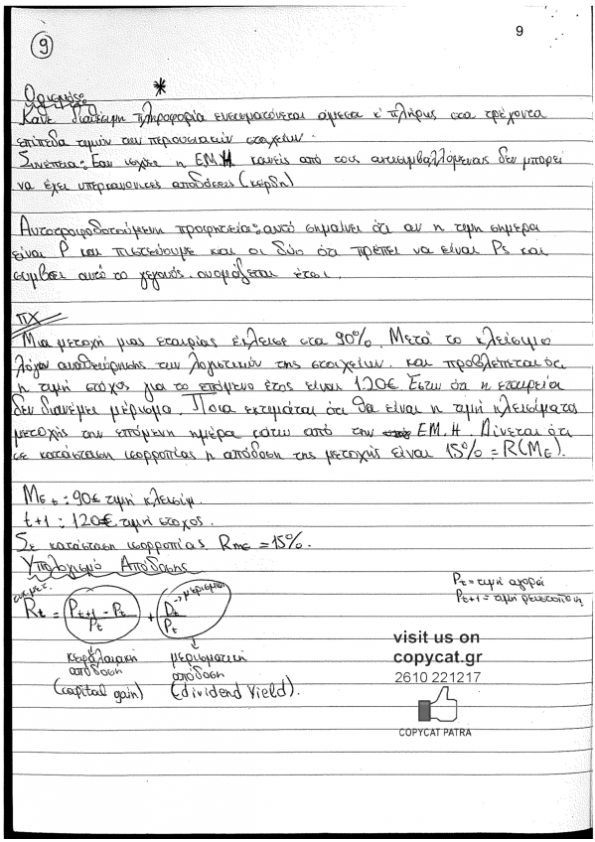 9
9
Ορισμός *
Κάθε διαθέσιμη πληροφορία ενσωματώνεται άμεσα κ' πλήρης στα τρέχοντα
επίπεδα τιμών των περουσιακών στοιχείων.
Συνέπεια: Εαν ισχύει η ΕΜΗ κανείς από τους αντισυμβαλλόμενους δεν μπορεί
να έχει υπερκανονικές αποδόσεις (κέρδη)
Αυτοτροφοδοτούμενη προφητεία: αυτό σημαίνει ότι αν η τιμή σήμερα
είναι P και πιστεύουμε και οι δύο ότι πρέπει να είναι Ps και
συμβεί αυτό το γεγονός ονομάζεται έτσι.
ΠΧ
Μια μετοχή μιας εταιρίας έκλεισε στα 90%. Μετά το κλείσιμο
λόγω αναθεώρησης των λογιστικών της στοιχείων και προβλέπεται ότι
η τιμή στόχος για το επόμενο έτος είναι 120€. Έστω ότι η εταιρεία
δεν διανέμει μέρισμα. Ποια εκτιμάται ότι θα είναι η τιμή κλεισίματος
μετοχής την επόμενη ημέρα κάτω από την ΕΜ.Η. Δίνεται ότι
σε κατάσταση ισορροπίας η απόδοση της μετοχής είναι 15% = R(Με).
Με t : 90€ τιμή κλεισιμ.
t+1 : 120€ τιμή στόχος.
Σε κατάσταση ισορροπίας Rmε = 15%.
Υπολογισμό Απόδοσης
Rt = (Pt+1 - Pt)/Pt + Dt/Pt → μερισμα
Pt = τιμή αγορά
Pt+1 =
κεφαλαιακή μερισματική
απόδοση απόδοση
(capital gain) (dividend Yield).
visit us on
copycat.gr
2610 221217
COPYCAT PATRA